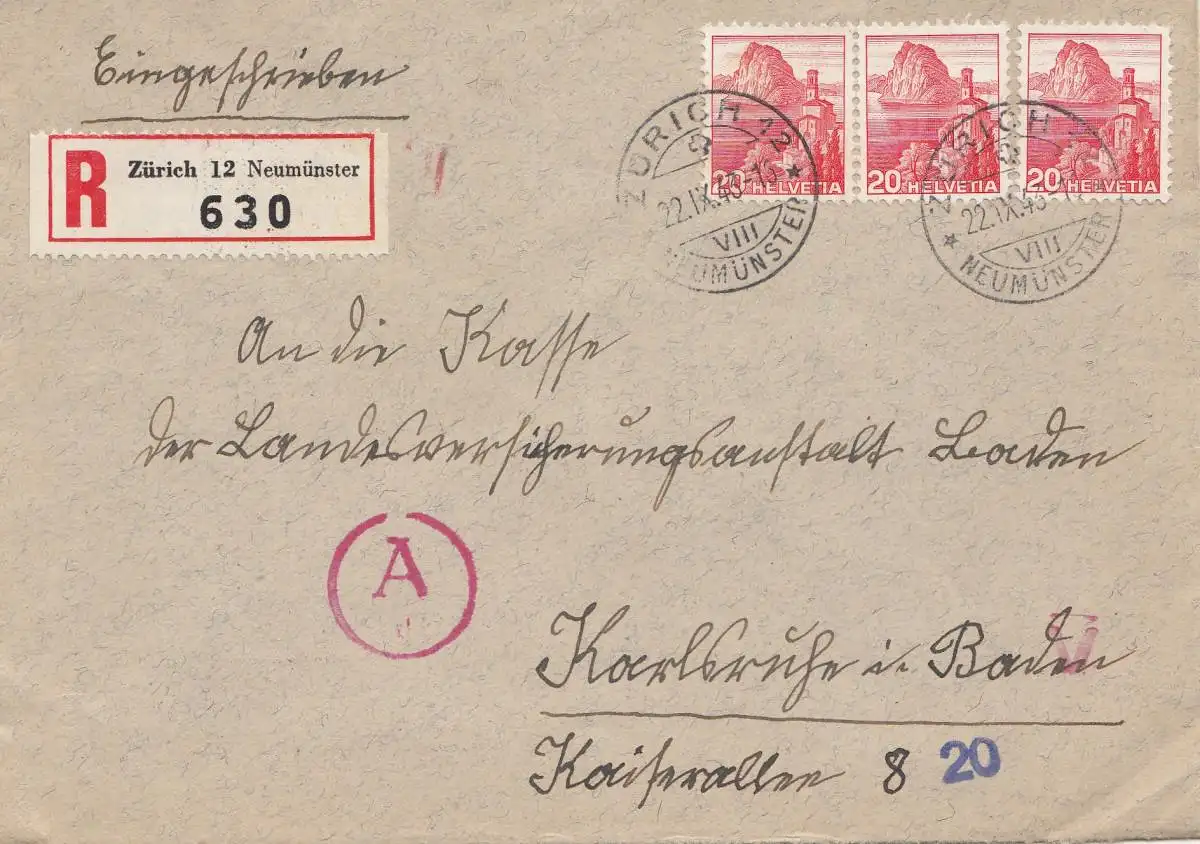 Eingeschrieben
R Zürich 12 Neumünster
630
20 HELVETIA
20 HELVETIA
20 HELVETIA
ZÜRICH 12
22.IX.43
VIII
NEUMÜNSTER
ZÜRICH
22.IX.43
VIII
NEUMÜNSTER
An die Kasse
der Landesversicherungsanstalt Baden
A
Karlsruhe i. Baden
Kaiserallee 8
20